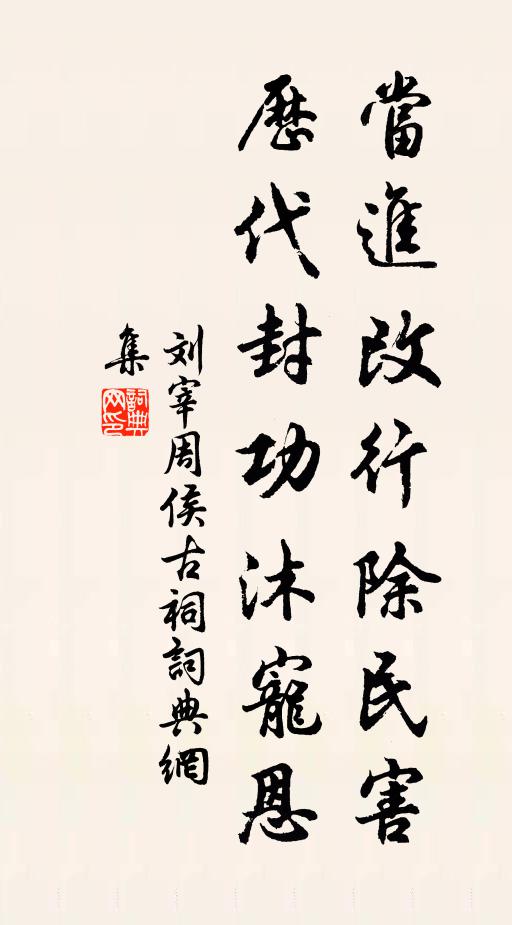 當進改行除民害
歷代封功沐寵恩
刘宰周侯古祠詞典網
集
詞典网印